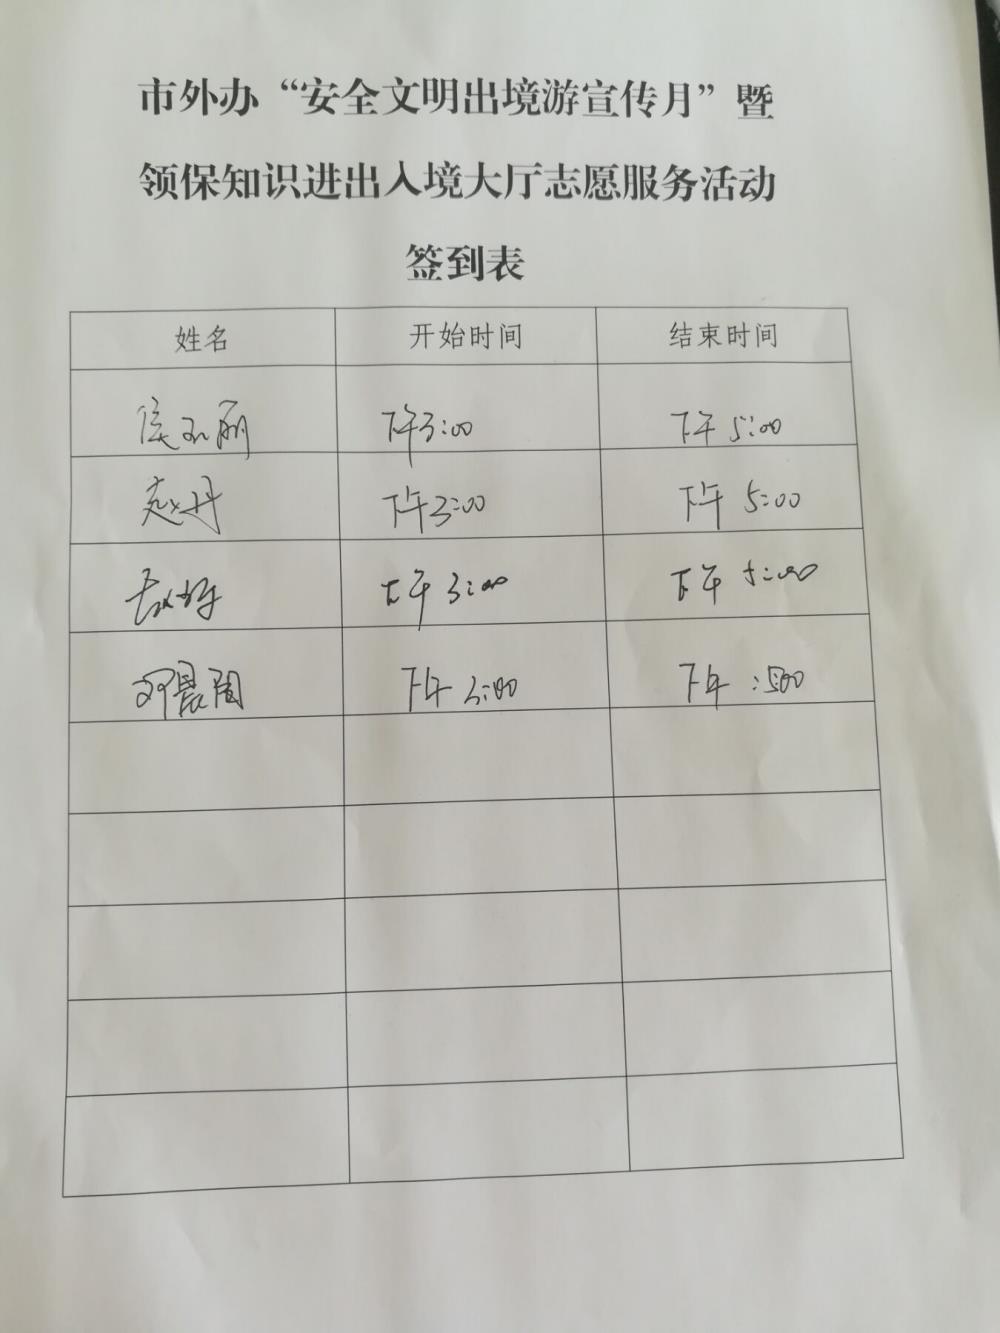 市外办“安全文明出境游宣传月”暨
领保知识进出入境大厅志愿服务活动
签到表
姓名 开始时间 结束时间
下午3:00 下午 5:00
赵丹 下午3:00 下午 5:00
下午 3:00 下午 5:00
邓晨阁 下午 3:00 下午 :500